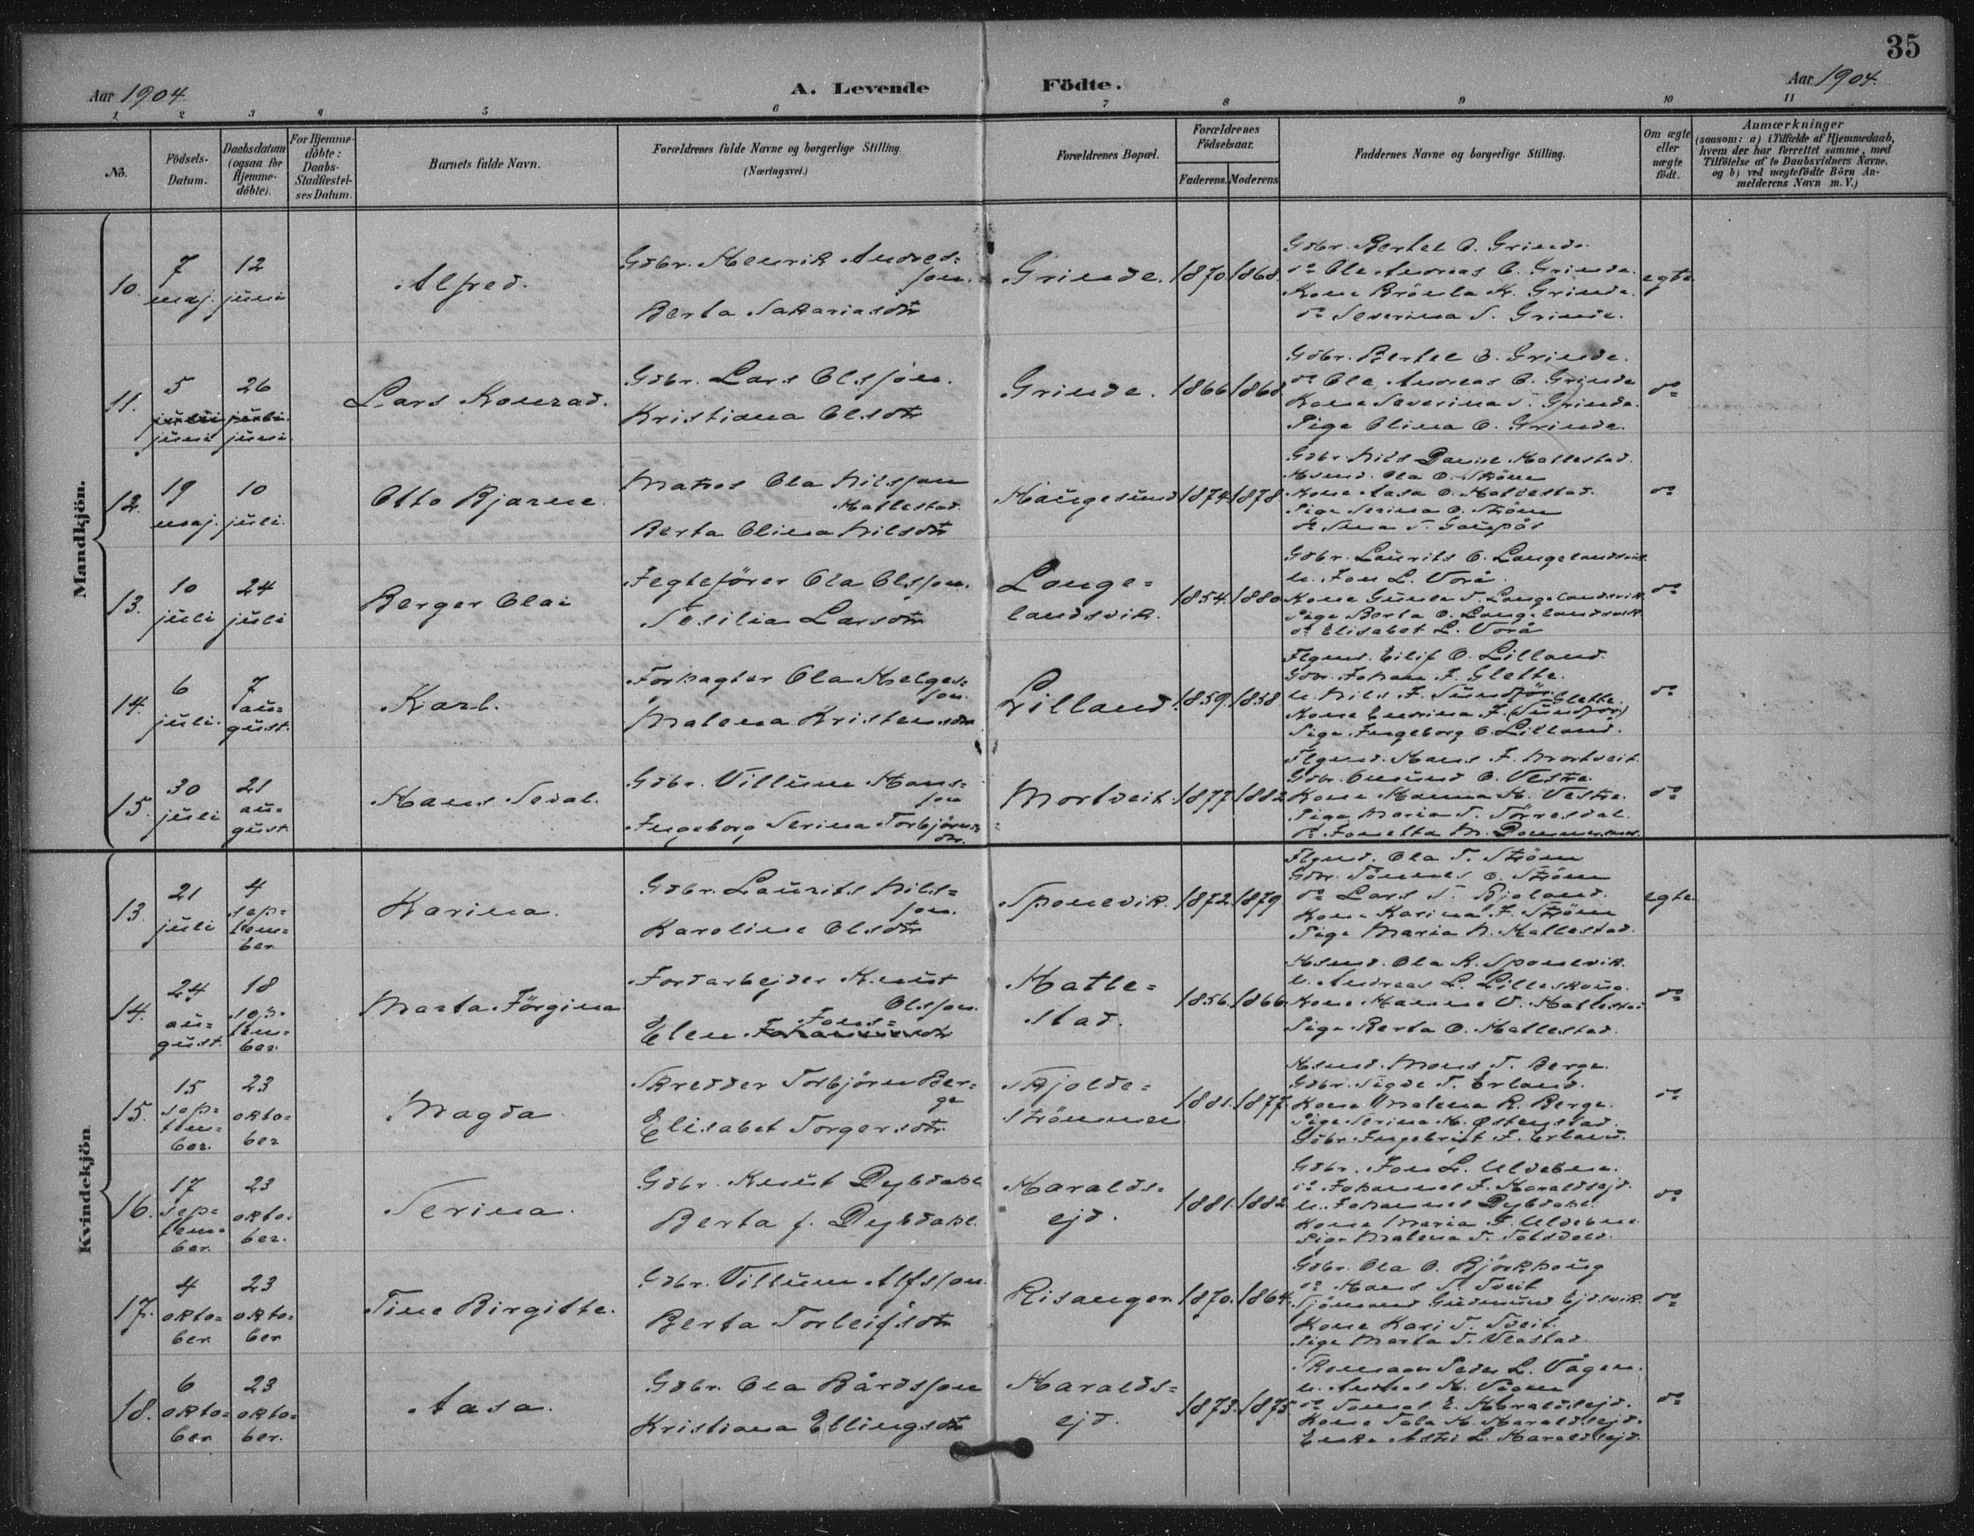 35
Aar 1904
A. Levende Födte.
Aar 1904
1 2 3 4 5 6 7 8 9 10 11
No.
Födsels-Datum.
Daabsdatum (ogsaa for Hjemme-döbte).
For Hjemme-döbte: Daabs-Stadfæstel-ses Datum.
Barnets fulde Navn.
Forældrenes fulde Navne og borgerlige Stilling.
(Næringsvei.)
Forældrenes Bopæl.
Forældrenes Födselsaar.
Faderens. Moderens.
Faddernes Navne og borgerlige Stilling.
Om ægte eller uægte födt.
Anmærkninger
(saasom: a) i Tilfælde af Hjemmedaab,
hvem der har forrettet samme, med
Tilföielse af to Daabsvidners Navne,
og b) ved uægtefödte Börn An-
melderens Navn m. V.)
Mandkjön.
10. 7 maj. 12 juni Alfred. Gdbr. Henrik Andres=
son.
Berta Sakariasdtr Grinde. 1870. 1868.
Gdbr. Bertel O. Grinde.
do Ole Andreas O. Grinde.
Kone Brönla K. Grinde.
do Severina S. Grinde. egte.
11. 5 juni 26 juni. Lars Konrad. Gdbr. Lars Olsson.
Kristiana Olsdtr Grinde. 1866. 1868
Gdbr. Bertel O. Grinde.
do Ole Andreas O. Grinde
Kone Severina S. Grinde.
Pige Olina O. Grinde. do
12. 19 maj. 10 juli. Otto Bjarne. Matros Ola Nilsson
Hatlestad.
Berta Olina Nilsdtr Haugesund 1874. 1878.
Gdbr. Nils Daniel Hatlestad.
Hsmd. Ola O. Ström
Kone Aasa O. Hatlestad.
Pige Serina O. Ström
do Sma S. Gaupås do
13. 10 juli 24 juli Berger Olai Jegtefører Ola Olsson.
Sesilia Larsdtr Lange=
landsvik. 1854. 1880
Gdbr. Laurits O. Langelandsvik
u. Jon L. Vorå.
Kone Gunla T. Langelandsvik
Pige Berta O. Langelandsvik
do Elisabet L. Vorå do
14. 6 juli. 7 au=
gust. Karl. Forpagter Ola Helges=
son.
Malena Kristensdtr Lilland 1859. 1858
Flgmd. Eilif O. Lilland.
Gdbr. Johan J. Slette.
u. Nils J. Sundför Slette.
Kone Endrina J. (Sundför)
Pige Ingeborg O. Lilland. do
15. 30 juli 21 au=
gust. Hans Seval. Gdbr. Villum Hans=
son
Ingeborg Serina Torbjörns=
dtr. Mortveit 1877. 1882.
Flgmd. Hans J. Mortveit.
Gdbr. Omund O. Vestre.
Kone Hanna H. Vestre.
Pige Maria T. Törresdal.
do Jonetta M. do
Kvindekjön.
13. 21 juli 4 sep=
tem=
ber Karina. Gdbr. Laurits Nils=
son.
Karoline Olsdtr Sponevik. 1872. 1879
Flgmd. Ola T. Ström
Gdbr. Tönnes O. Ström
do Lars T. Bjoland.
Kone Karina J. Ström
Pige Maria N. Hatlestad. egte.
14. 24 au=
gust. 18 sep=
tem=
ber. Marta Jörgina. Jordarbejder Knut
Olsson.
Elen Jons= dtr Hatle=
stad. 1856. 1866.
Hsmd. Ola K. Sponevik.
u. Andreas L. Lilleskaug.
Kone Hanna V. Hatlestad
Pige Berta O. Hatlestad. do
15. 15 sep=
tem=
ber. 23 okto=
ber Magda. Skredder Torbjörn Ber=
ge
Elisabet Torgersdtr. Skjolde=
strömmen 1881. 1877.
Hsmd. Mons T. Berge.
Gdbr. Sigde T. Erland.
Kone Malena R. Berge.
Pige Serina H. Östenstad.
Gdbr. Ingebrigt J. Erland. do
16. 17 sep=
tem=
ber 23 okto=
ber. Serina. Gdbr. Knut Dybdahl
Berta f. Dybdahl. Haralds=
ejd. 1881. 1882.
Gdbr. Jon L. Uldebne.
do Johannes J. Haraldsejd.
u. Johannes Dybdahl.
Kone Maria J. Uldebne.
Pige Malena T. do
17. 4 okto=
ber 23 okto=
ber Tine Birgitte. Gdbr. Villum Alfsson.
Berta Torleifsdtr Risanger. 1870. 1864.
Gdbr. Ola O. Björkhaug
do Hans S. Tveit
Sjömand Gudmund Ejdsvik.
Kone Kari T. Tveit.
Pige Marta T. Vestad. do
18. 6 okto=
ber 23 okto=
ber. Aasa. Gdbr. Ola Bårdsson
Kristiana Ellingsdtr Haralds=
ejd. 1873. 1875.
Skomager Peder L. Vågen.
u. Andreas H. Vågen
do Tomas E. Haraldsejd.
Kone Tala H. Haraldsejd.
Enke Astri L. Haraldsejd. do